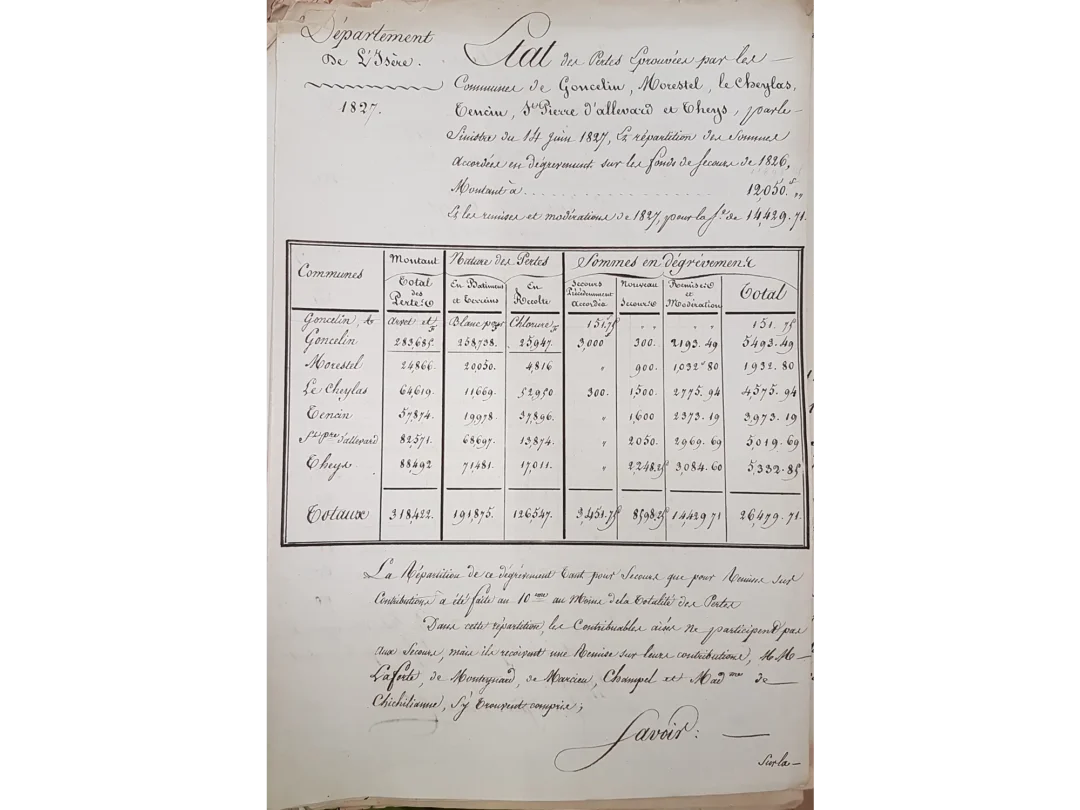 Département
De L'Isère.
1827.
Etat des Pertes Eprouvées par les
Communes de Goncelin, Morestel, le Cheylas,
Tencin, St Pierre d'allevard et Theys, par le
Sinistre du 14 juin 1827, Et répartition des Sommes
Accordées en dégrèvement sur les fonds de Secours de 1826,
Montant à . . . . . . . . . . . . . . . . 12,050.f „
Et les remises et modérations de 1827, pour la Se de 14,429.71.
Communes Montant Total des Pertes Nature des Pertes Sommes en dégrèvement
En Batimens et Terrains En Récolte Secours Précédemment Accordés Nouveaux Secours Remises et Modération Total
Goncelin, & Arvet et Blanc pour Chlorure 151.75 " " " " 151.75
Goncelin 283,685. 258,738. 25,947. 3,000 300. 2193.49 5493.49
Morestel 24,866. 20050. 4,816 " 900. 1,032.80 1932.80
Le Cheylas 64,619. 11,669. 52,950 300. 1,500 2775.94 4,575.94
Tencin 57,874. 19978. 37,896. " 1,600 2373.19 3,973.19
St pre d'allevard 82,571. 68697. 13,874. " 2050. 2969.69 5,019.69
Theys 88,492 71,481. 17,011. " 2,248.25 3,084.60 5,332.85
Totaux 318,422. 191,875. 126,547. 3,451.75 8598.25 14429 71 26,479.71.
La Répartition de ce dégrèvement tant pour Secours que pour Remises sur
Contributions a été faite au 10me au Moins de la Totalité des Pertes
Dans cette répartition, les Contribuables aisés ne participent pas
aux Secours, mais ils reçoivent une Remise sur leurs contributions, M.M
Laforte, de Monteynard, de Marcieu, Champel et Madme de
Chichilianne, s'y trouvent compris;
Savoir:
Sur la